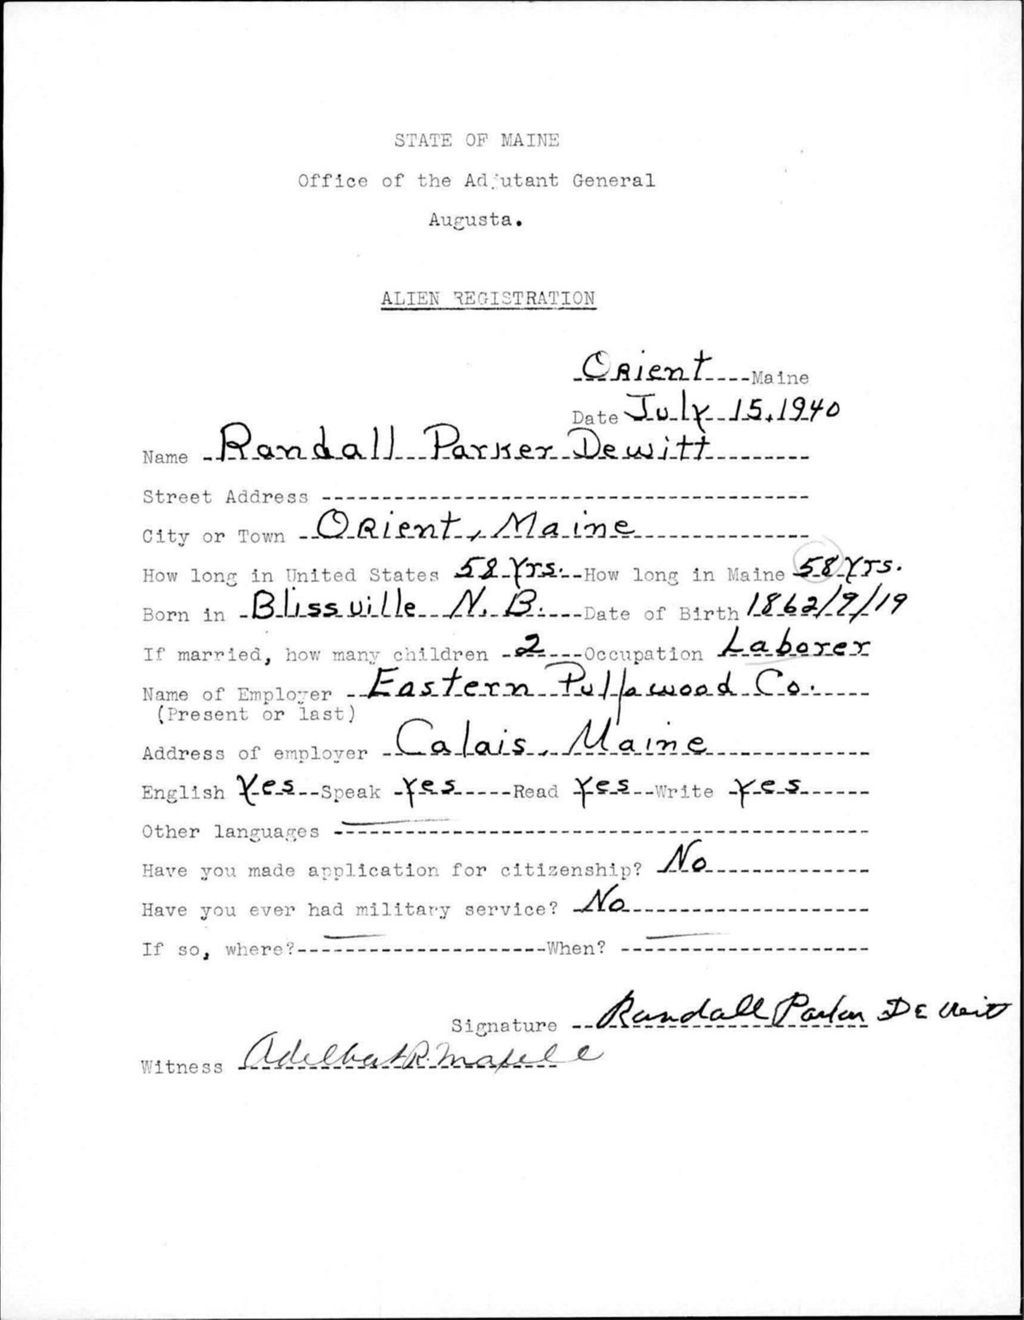 STATE OF MAINE
Office of the Adjutant General
Augusta.
ALIEN REGISTRATION
Orient Maine
Date July 15, 1940
Name Randall Parker Dewitt
Street Address
City or Town Orient, Maine
How long in United States 58 Yrs. How long in Maine 58 Yrs.
Born in Blissville N. B. Date of Birth 1862/9/19
If married, how many children 2 Occupation Laborer
Name of Employer Eastern Pulpwood Co.
(Present or last)
Address of employer Calais, Maine
English Yes Speak Yes Read Yes Write Yes
Other languages
Have you made application for citizenship? No
Have you ever had military service? No
If so, where? When?
Signature Randall Parker DeWitt
Witness Adelbert R.